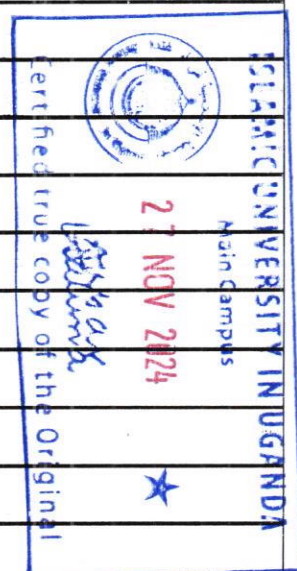 ISLAMIC UNIVERSITY IN UGANDA
Main Campus
NOV 2024
Certified true copy of the Original